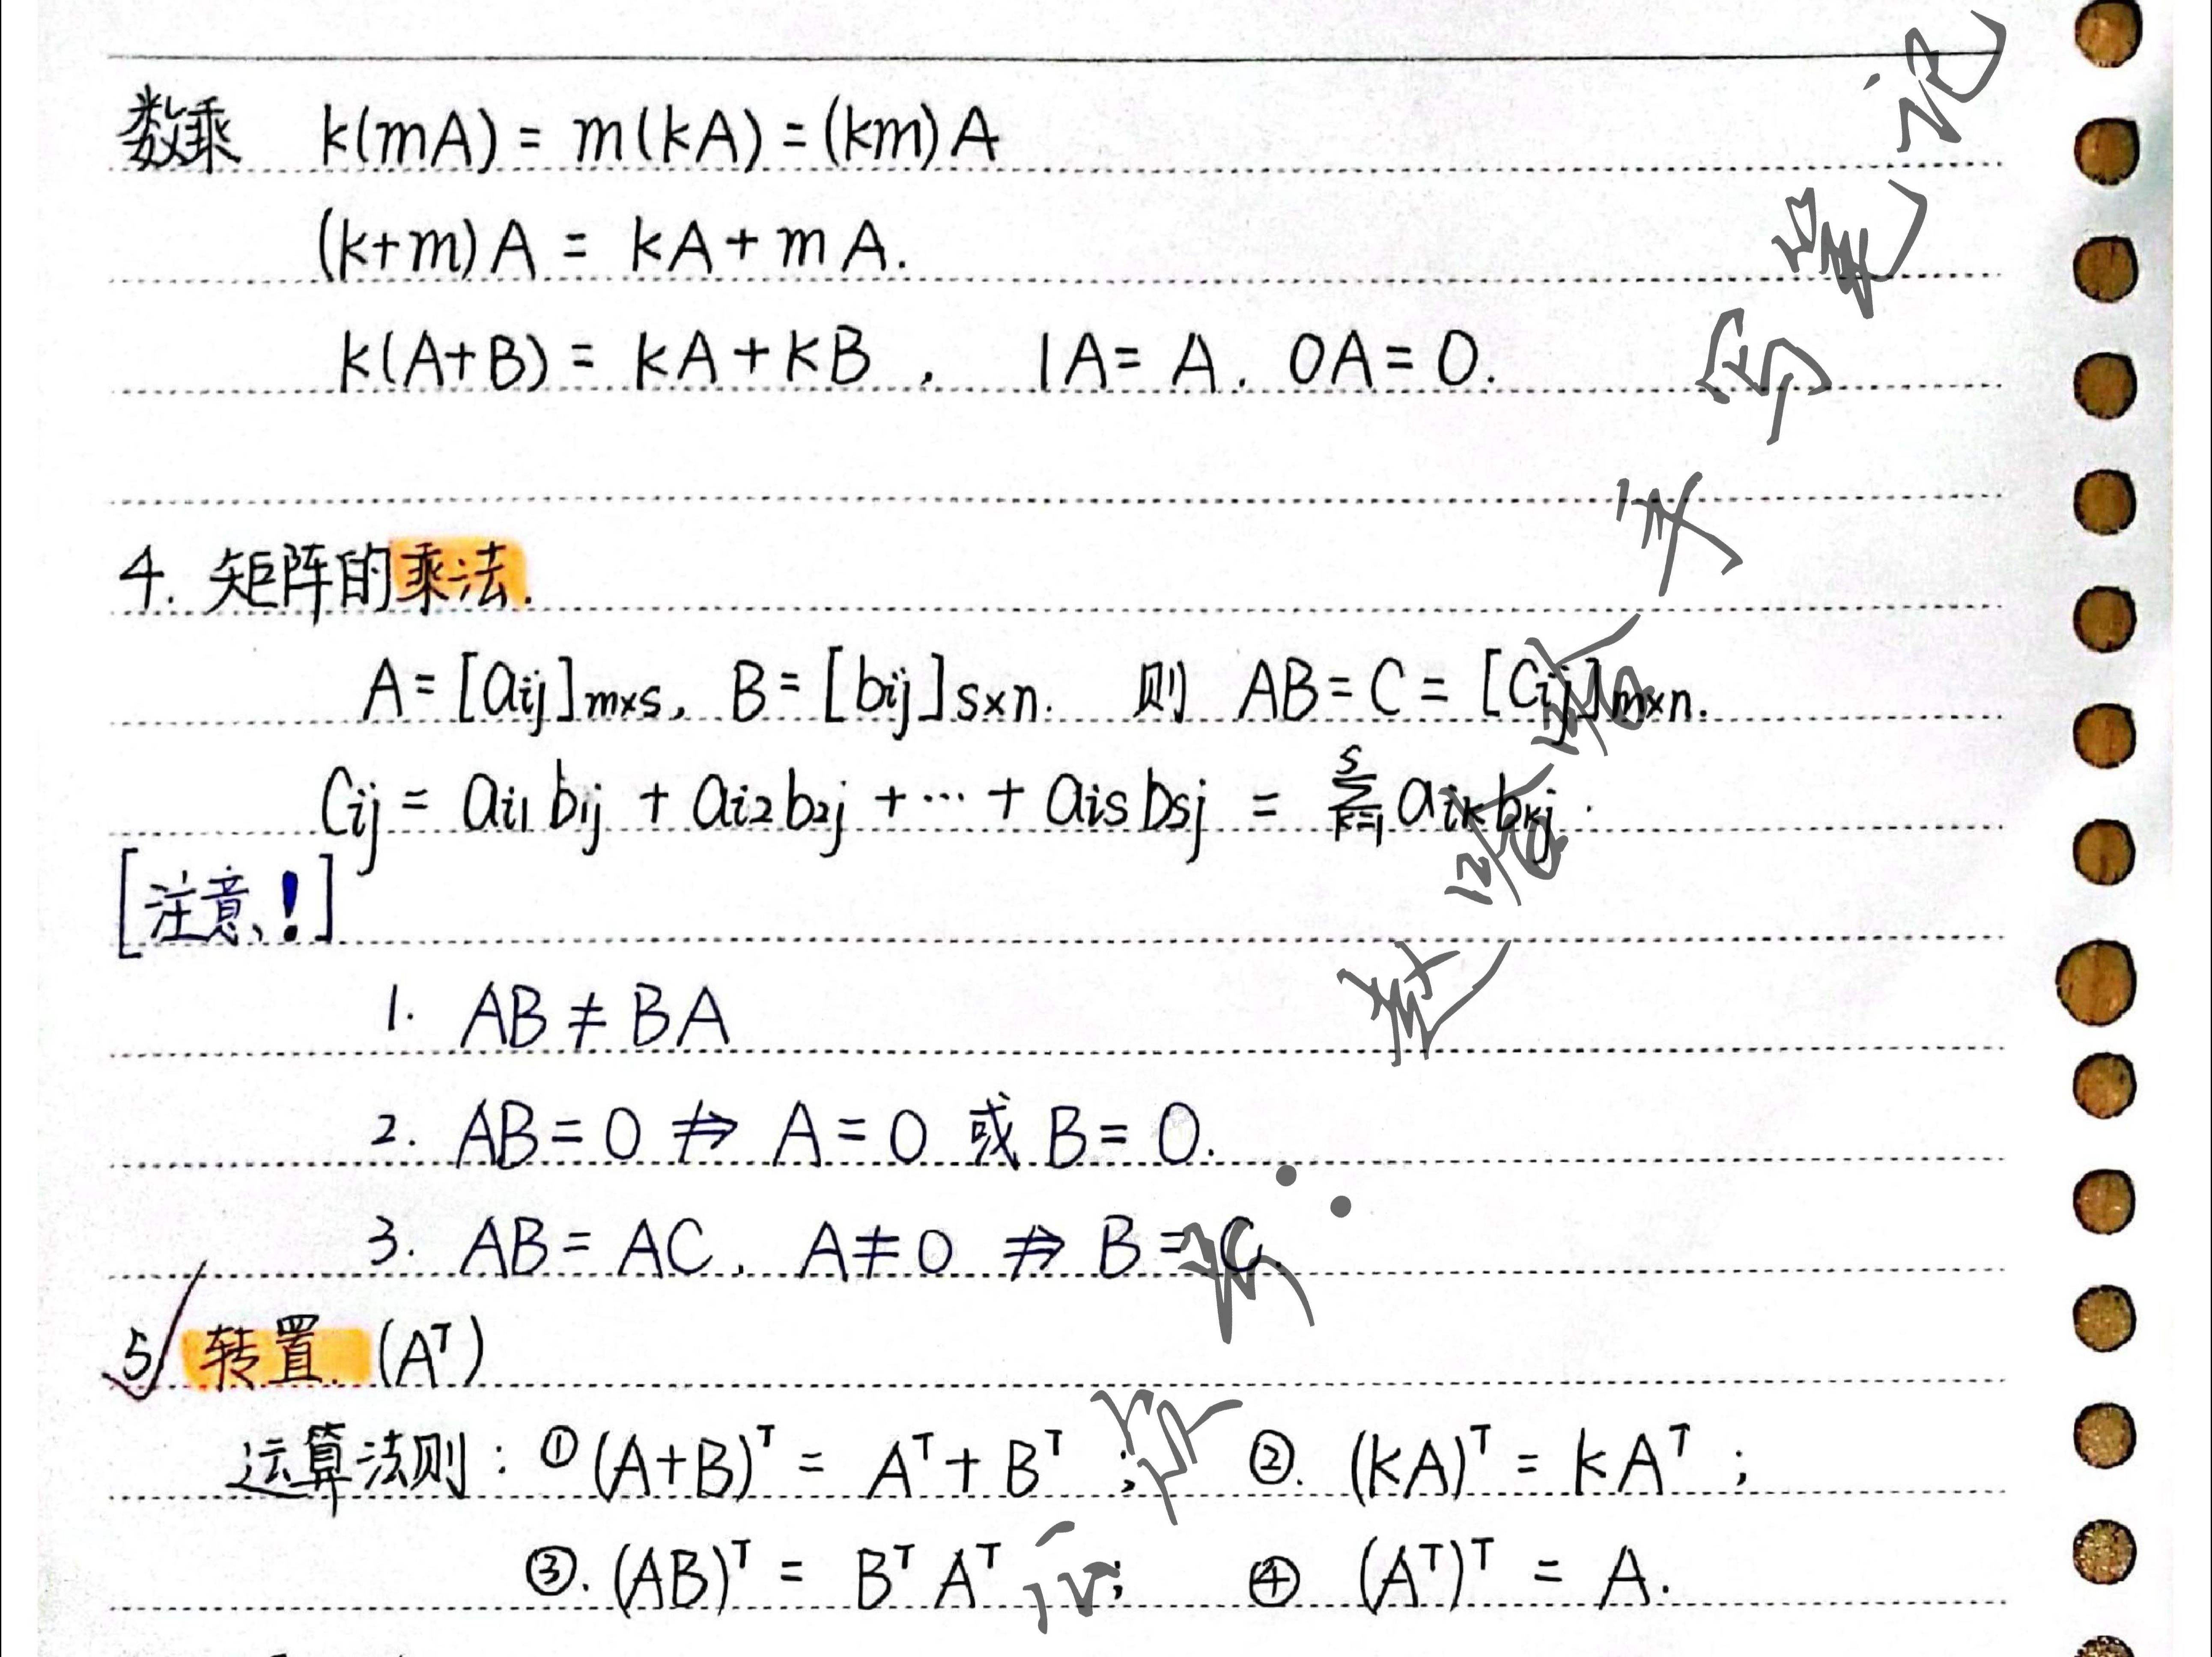 数乘 k(mA) = m(kA) = (km)A
(k+m)A = kA + mA.
k(A+B) = kA + kB , 1A = A. 0A = 0.
4. 矩阵的乘法.
A = [aij]m×s, B = [bij]s×n. 则 AB = C = [Cij]m×n.
Cij = ai1 b1j + ai2 b2j + ⋯ + ais bsj = ∑(k=1→s) aik bkj .
[注意、!]
1. AB ≠ BA
2. AB = 0 ⇏ A = 0 或 B = 0.
3. AB = AC , A ≠ 0 ⇏ B = C.
5 转置. (Aᵀ)
运算法则 : ① (A+B)ᵀ = Aᵀ + Bᵀ ; ②. (kA)ᵀ = kAᵀ ;
③. (AB)ᵀ = Bᵀ Aᵀ ; ④ (Aᵀ)ᵀ = A.